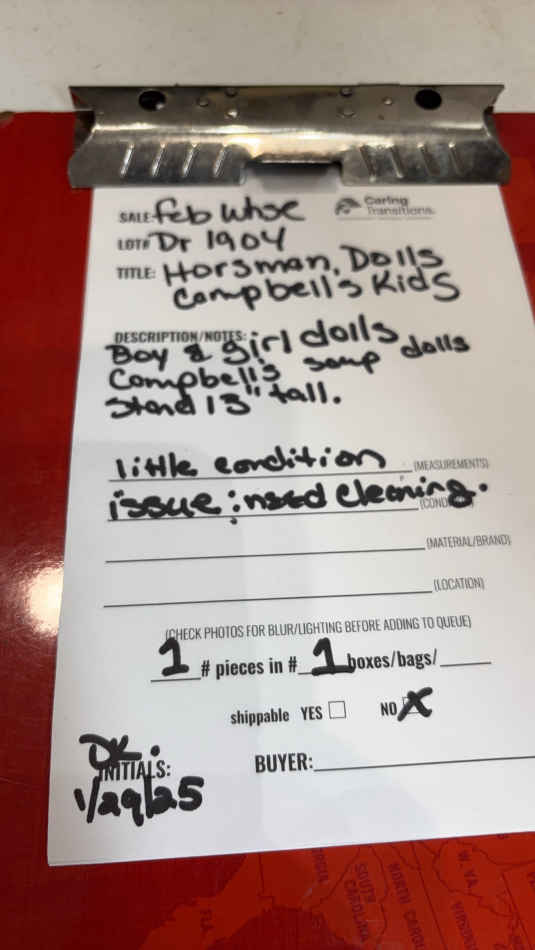 SALE: Feb Whse
Caring Transitions.
LOT# Dr 1904
TITLE: Horsman, Dolls
Campbell's Kids
DESCRIPTION/NOTES:
Boy & girl dolls
Campbell's soup dolls
Stand 13" tall.
little condition (MEASUREMENTS)
issue; need cleaning.
(MATERIAL/BRAND)
(LOCATION)
(CHECK PHOTOS FOR BLUR/LIGHTING BEFORE ADDING TO QUEUE)
1 # pieces in # 1 boxes/bags/
shippable YES NO X
DK.
INITIALS: BUYER:
1/29/25
SOUTH CAROLINA
NORTH CAROLINA
W. VA.
FLA.